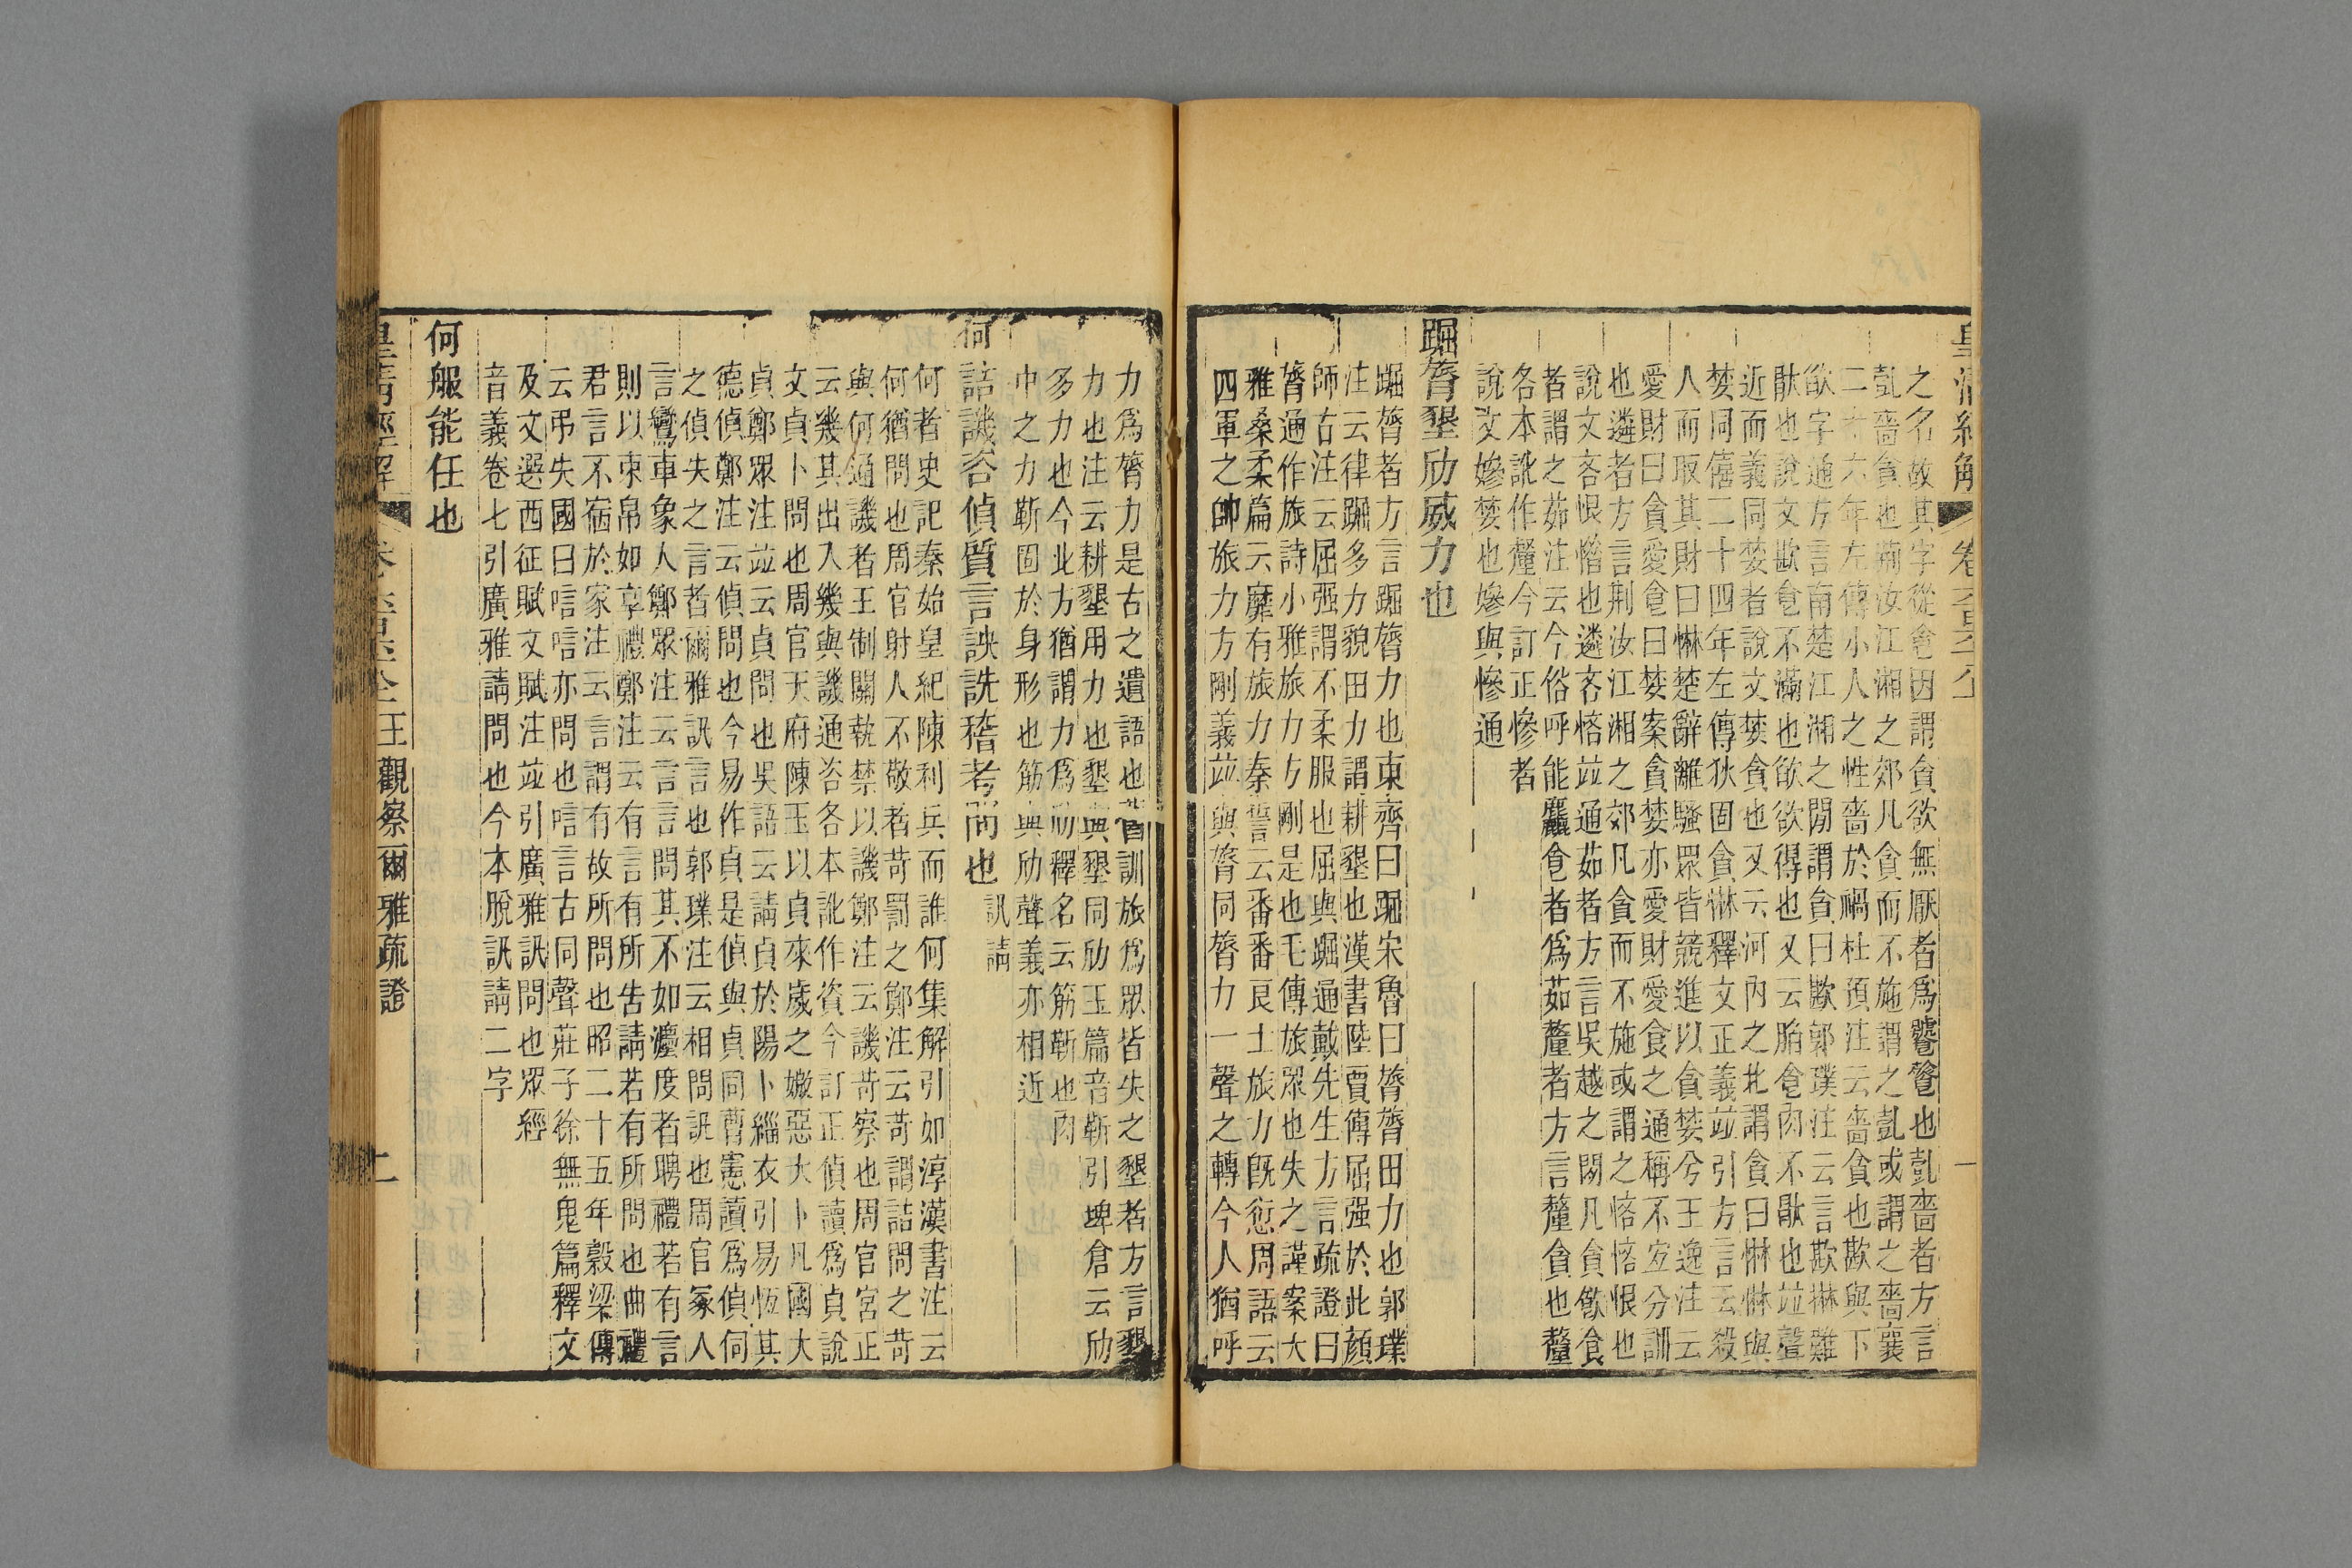 皇清經解
之名故其字從飠因謂貪欲無厭者爲饕餮也㱯嗇者方言
㱯嗇貪也荊汝江湘之郊凡貪而不施謂之㱯或謂之嗇襄
二十六年左傳小人之性嗇於禍杜預注云嗇貪也歁與下
欿字通方言南楚江湘之閒謂貪曰歁郭璞注云言歁綝難
猒也說文歁食不滿也欿欲得也又云䐄食肉不猒也竝聲
近而義同婪者說文婪貪也又云河內之北謂貪曰惏惏與
婪同僖二十四年左傳狄固貪惏釋文正義竝引方言云殺
人而取其財曰惏楚辭離騷眾皆競進以貪婪兮王逸注云
愛財曰貪愛食曰婪案貪婪亦愛財愛食之通稱不宜分訓
也遴者方言荊汝江湘之郊凡貪而不施或謂之悋悋恨也
說文吝恨惜也遴吝悋竝通茹者方言吳越之閒凡貪飲食
者謂之茹注云今俗呼能麤食者爲茹釐者方言釐貪也釐
各本訛作釐今訂正慘者
說文嬠婪也嬠與慘通
踞膂墾劤威力也
踞膂者方言踞膂力也東齊曰踞宋魯曰膂膂田力也郭璞
注云律踞多力貌田力謂耕墾也漢書陸賈傳屈强於此顔
師古注云屈强謂不柔服也屈與踞通戴先生方言疏證曰
膂通作旅詩小雅旅力方剛是也毛傳旅眾也失之謹案大
雅桑柔篇云靡有旅力秦誓云番番良士旅力旣愆周語云
四軍之帥旅力方剛義竝與膂同膂力一聲之轉今人猶呼
力爲膂力是古之遺語也舊訓旅爲眾皆失之墾者方言墾
力也注云耕墾用力也墾與墾同劤玉篇音靳引埤倉云劤
多力也今北方猶謂力爲劤釋名云筋靳也肉
中之力靳固於身形也筋與劤聲義亦相近
何詰譏咨偵質言訣詵稽考問也訊請
何者史記秦始皇紀陳利兵而誰何集解引如淳漢書注云
何猶問也周官射人不敬者苛罰之鄭注云苛謂詰問之苛
與何通譏者王制關執禁以譏鄭注云譏苛察也周官宮正
云幾其出入幾與譏通咨各本訛作資今訂正偵讀爲貞說
文貞卜問也周官天府陳玉以貞來歲之媺惡大卜凡國大
貞鄭眾注竝云貞問也吳語云請貞於陽卜緇衣引易恆其
德偵鄭注云偵問也今易作貞是偵與貞同曹憲讀爲偵伺
之偵失之言者爾雅訊言也郭璞注云相問訊也周官冢人
言鸞車象人鄭眾注云言言問其不如灋度者聘禮若有言
則以束帛如享禮鄭注云有言有所告請若有所問也曲禮
君言不宿於家注云言謂有故所問也昭二十五年穀梁傳
云弔失國曰唁唁亦問也唁言古同聲莊子徐無鬼篇釋文
及文選西征賦文賦注竝引廣雅訊問也眾經
音義卷七引廣雅請問也今本脫訊請二字
何服能任也
皇清經解
王觀察廣雅疏證